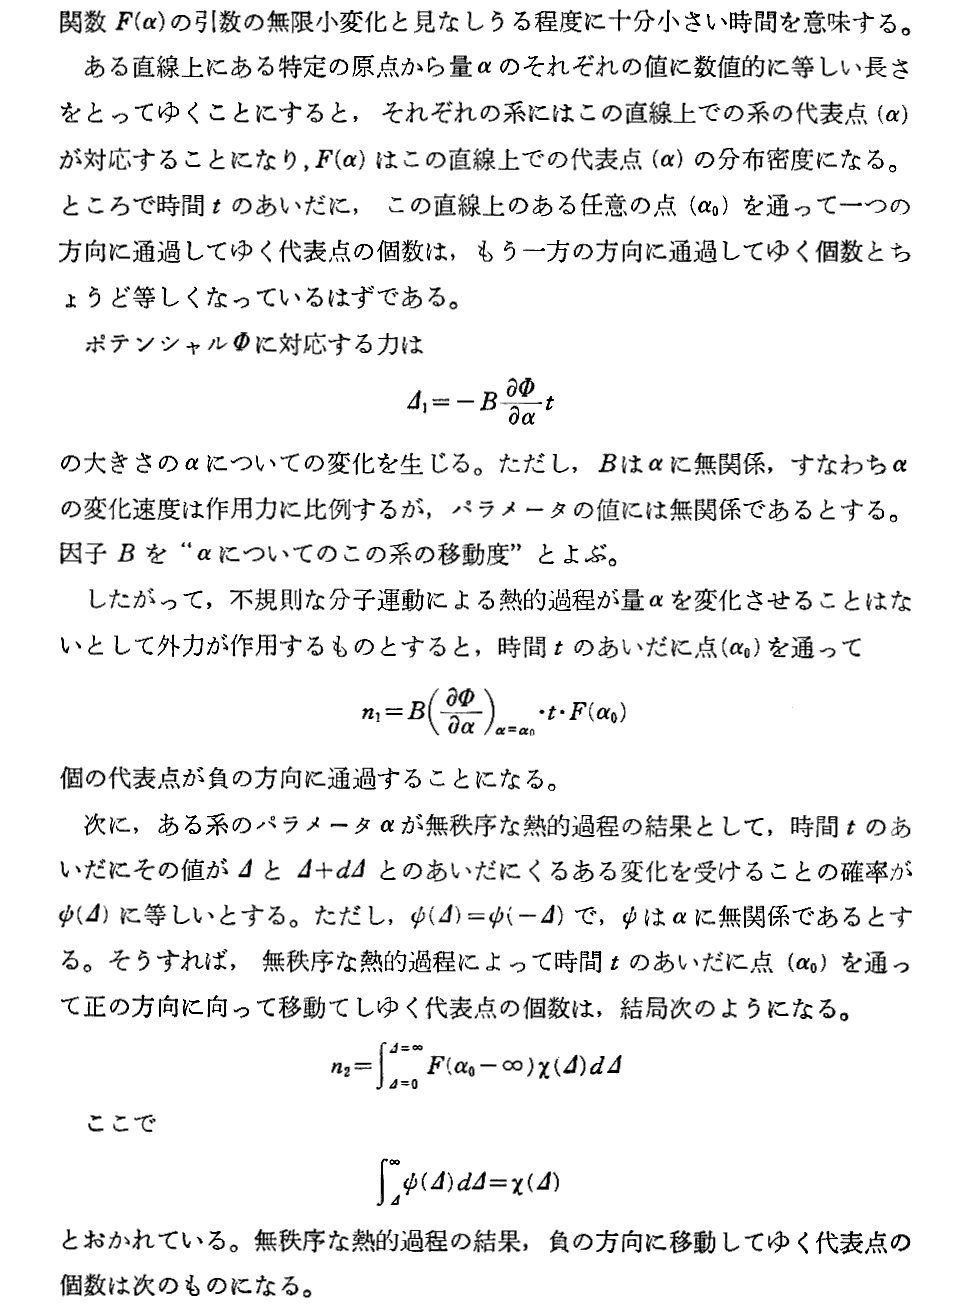 関数 F(α)の引数の無限小変化と見なしうる程度に十分小さい時間を意味する。
ある直線上にある特定の原点から量αのそれぞれの値に数値的に等しい長さ
をとってゆくことにすると， それぞれの系にはこの直線上での系の代表点 (α)
が対応することになり，F(α) はこの直線上での代表点 (α) の分布密度になる。
ところで時間 t のあいだに， この直線上のある任意の点 (α₀) を通って一つの
方向に通過してゆく代表点の個数は，もう一方の方向に通過してゆく個数とち
ょうど等しくなっているはずである。
ポテンシャルΦに対応する力は
Δ₁=−B ∂Φ/∂α t
の大きさのαについての変化を生じる。ただし，Bはαに無関係，すなわちα
の変化速度は作用力に比例するが，パラメータの値には無関係であるとする。
因子 B を “αについてのこの系の移動度” とよぶ。
したがって，不規則な分子運動による熱的過程が量αを変化させることはな
いとして外力が作用するものとすると，時間 t のあいだに点(α₀)を通って
n₁=B(∂Φ/∂α)α=α₀·t·F(α₀)
個の代表点が負の方向に通過することになる。
次に，ある系のパラメータαが無秩序な熱的過程の結果として，時間 t のあ
いだにその値が Δ と Δ+dΔ とのあいだにくるある変化を受けることの確率が
ψ(Δ) に等しいとする。ただし，ψ(Δ)=ψ(−Δ) で，ψはαに無関係であるとす
る。そうすれば， 無秩序な熱的過程によって時間 t のあいだに点 (α₀) を通っ
て正の方向に向って移動てしゆく代表点の個数は，結局次のようになる。
n₂=∫Δ=0^Δ=∞ F(α₀−∞)χ(Δ)dΔ
ここで
∫Δ^∞ ψ(Δ)dΔ=χ(Δ)
とおかれている。無秩序な熱的過程の結果，負の方向に移動してゆく代表点の
個数は次のものになる。